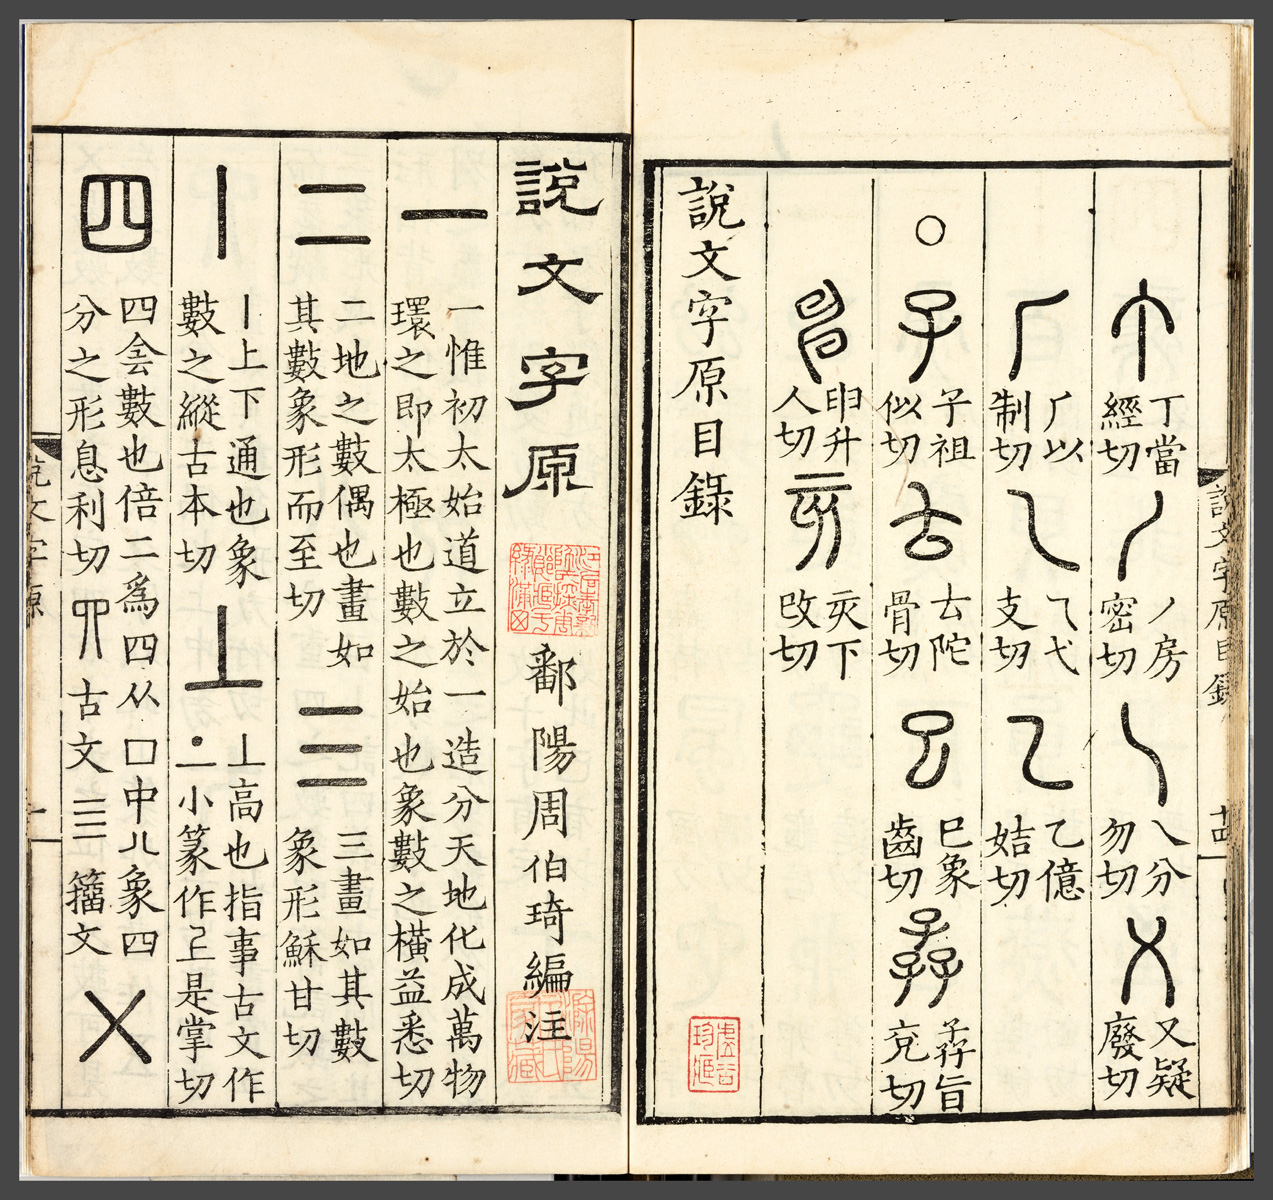 丁 丁當經切 丿 丿房密切 乀 乀分勿切 乂 乂疑廢切
𠂆 𠂆以制切 乁 乁弋支切 乙 乙億姞切
○ 子 子祖似切 𠫓 𠫓陀骨切 巳 巳象齒切 孨 孨旨兗切
申 申升人切 亥 亥下改切
說文字原目錄
說文字原目錄 十四
說文字原 鄱陽周伯琦編注
一 一惟初太始道立於一造分天地化成萬物
環之即太極也數之始也象數之橫益悉切
二 二地之數偶也畫如其數象形而至切 三 三畫如其數象形穌甘切
丨 丨上下通也象數之縱古本切 丄 丄高也指事古文作二小篆作上是掌切
四 四侌數也倍二爲四从囗中八象四分之形息利切 古文 亖籀文 㐅
說文字原 一